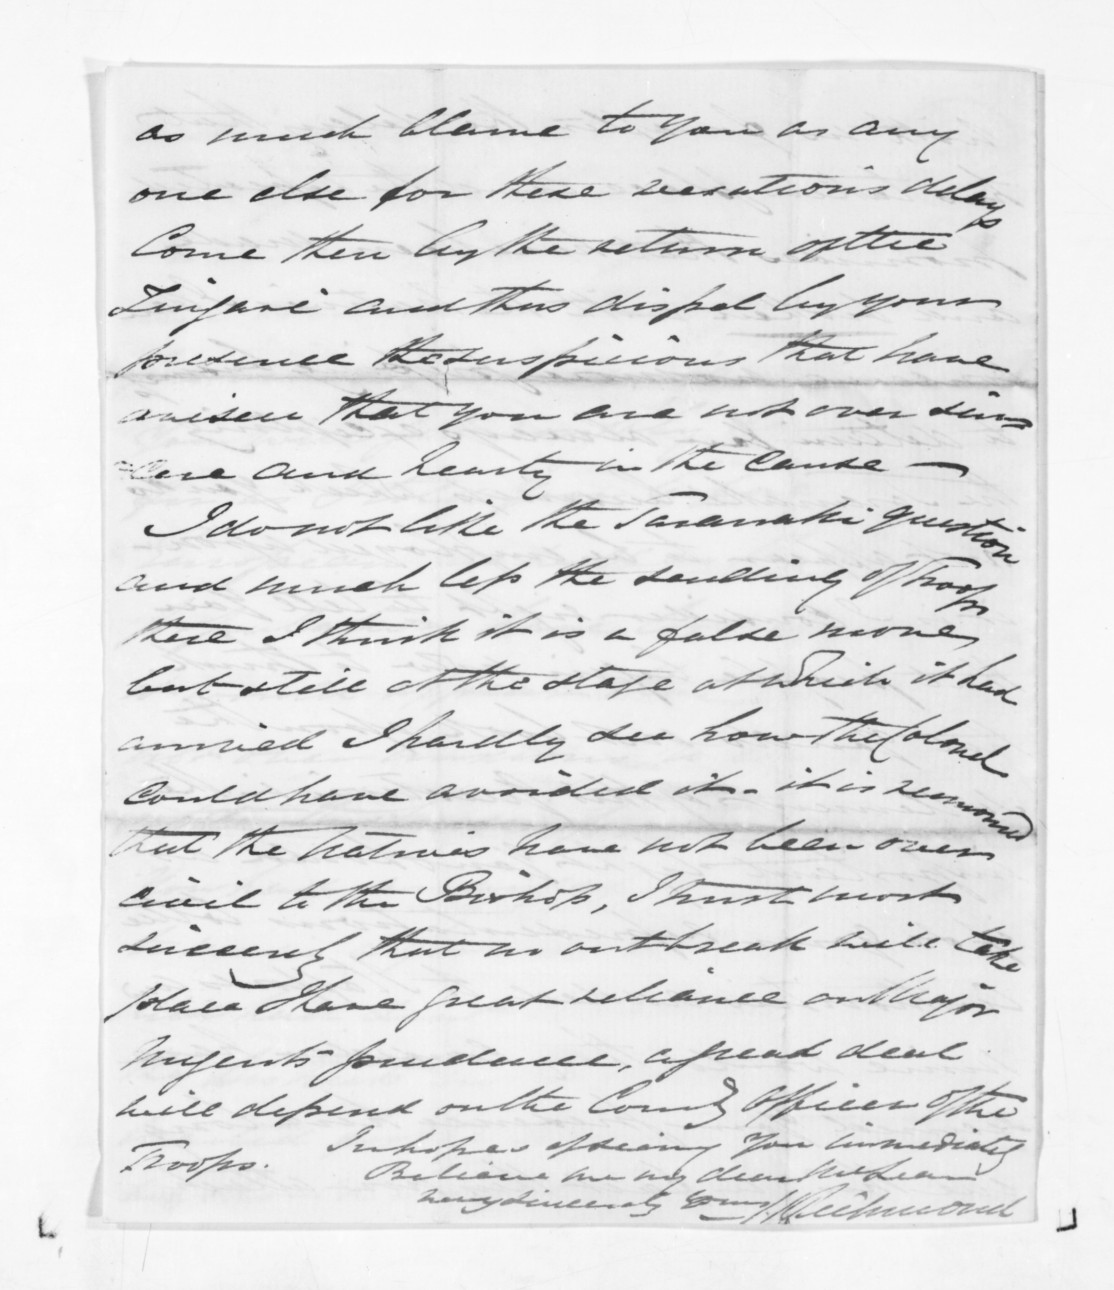 as much blame to you as any
one else for these vexatious delays
Come then by the return of the
Zingari and thus dispel by your
presence the suspicions that have
arisen that you are not over sin=
=cere and hearty in the cause —
I do not like the Taranaki question
and much less the sending of Troops
there I think it is a false move,
but still at the stage at which it had
arrived I hardly see how the Colonel
could have avoided it. - it is rumoured
that the Natives have not been over
civil to the Bishop, I trust most
sincerely that no outbreak will take
place I have great reliance on Major
Nugents prudence, a great deal
will depend on the Comg Officer of the
Troops.
In hopes of seeing you immediately
Believe me my dear McLean
very sincerely yours
Richmond